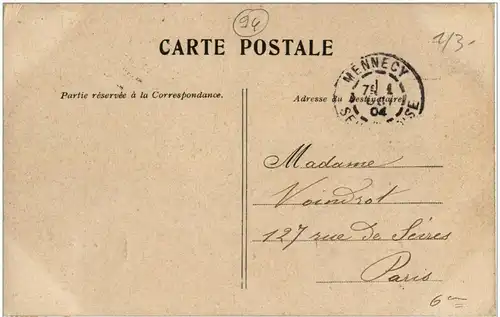 94
1/3-
CARTE POSTALE
MENNECY
7E 1
04
SEINE-ET-OISE
Partie réservée à la Correspondance.
Adresse du Destinataire
Madame
Voindrot
127 rue de Sèvres
Paris
6em